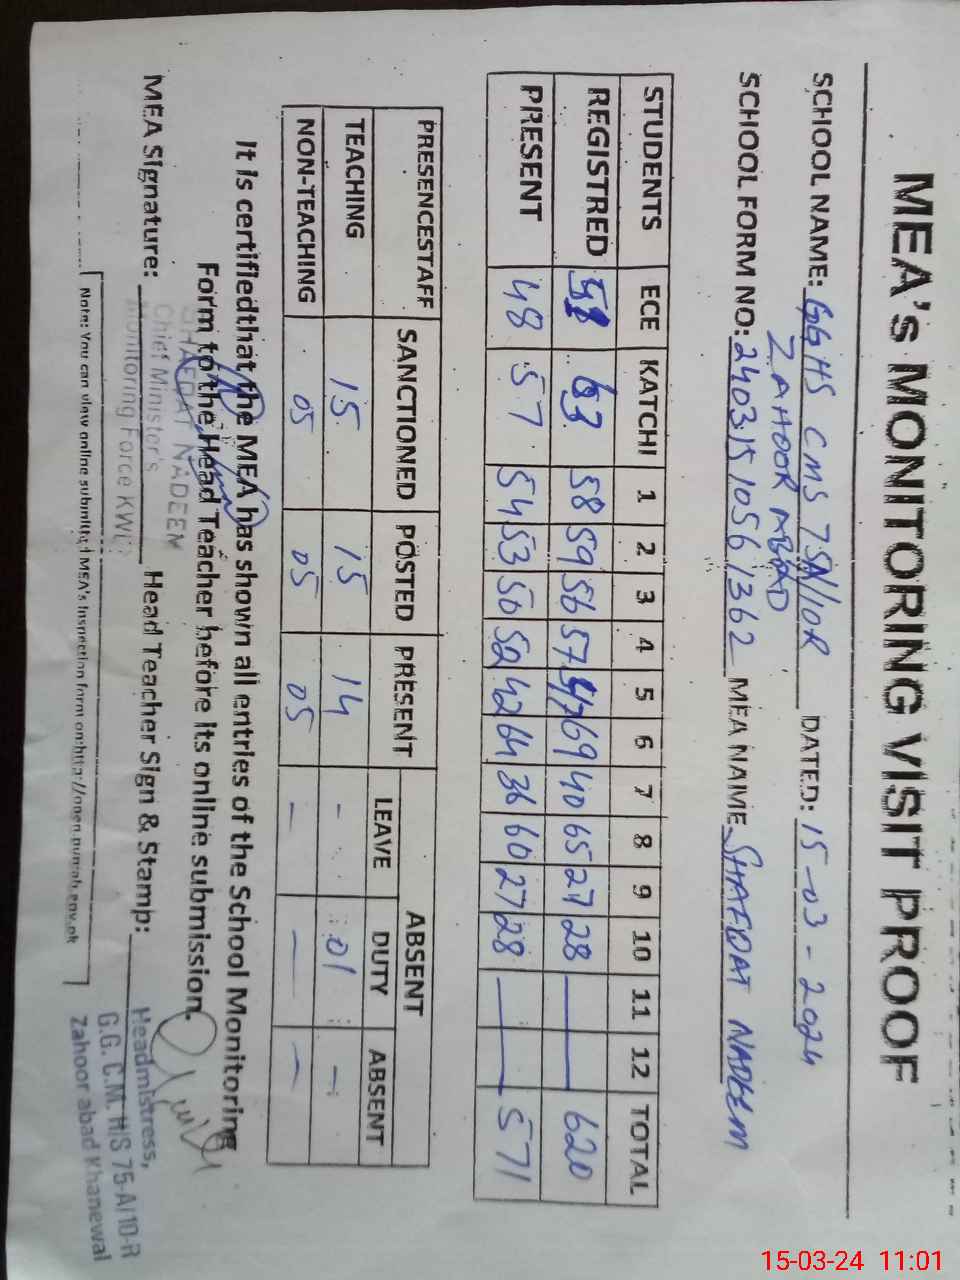 MEA's MONITORING VISIT PROOF
SCHOOL NAME: GGHS CMS 75A/10R DATED: 15-03-2024
ZAHOOR ABAD
SCHOOL FORM NO: 2403151056 1362 MEA NAME SHAFQAT NADEEM
STUDENTS ECE KATCHI 1 2 3 4 5 6 7 8 9 10 11 12 TOTAL
REGISTRED 63 58 59 56 57 69 40 65 27 28 — — 620
PRESENT 48 57 54 53 50 52 42 64 36 60 27 28 — — 571
PRESENCESTAFF SANCTIONED POSTED PRESENT ABSENT
LEAVE DUTY ABSENT
TEACHING 15 15 14 - 01 -
NON-TEACHING 05 05 05 - - -
It is certifiedthat the MEA has shown all entries of the School Monitoring
Form to the Head Teacher before its online submission.
MEA Signature: Head Teacher Sign & Stamp:
SHAFQAT NADEEM
Chief Minister's
Monitoring Force KWL
Headmistress,
G.G. C.M. H/S 75-A/10-R
Zahoor abad Khanewal
Note: You can view online submitted MEA's Inspection form on:http://open.punjab.gov.pk
15-03-24 11:01